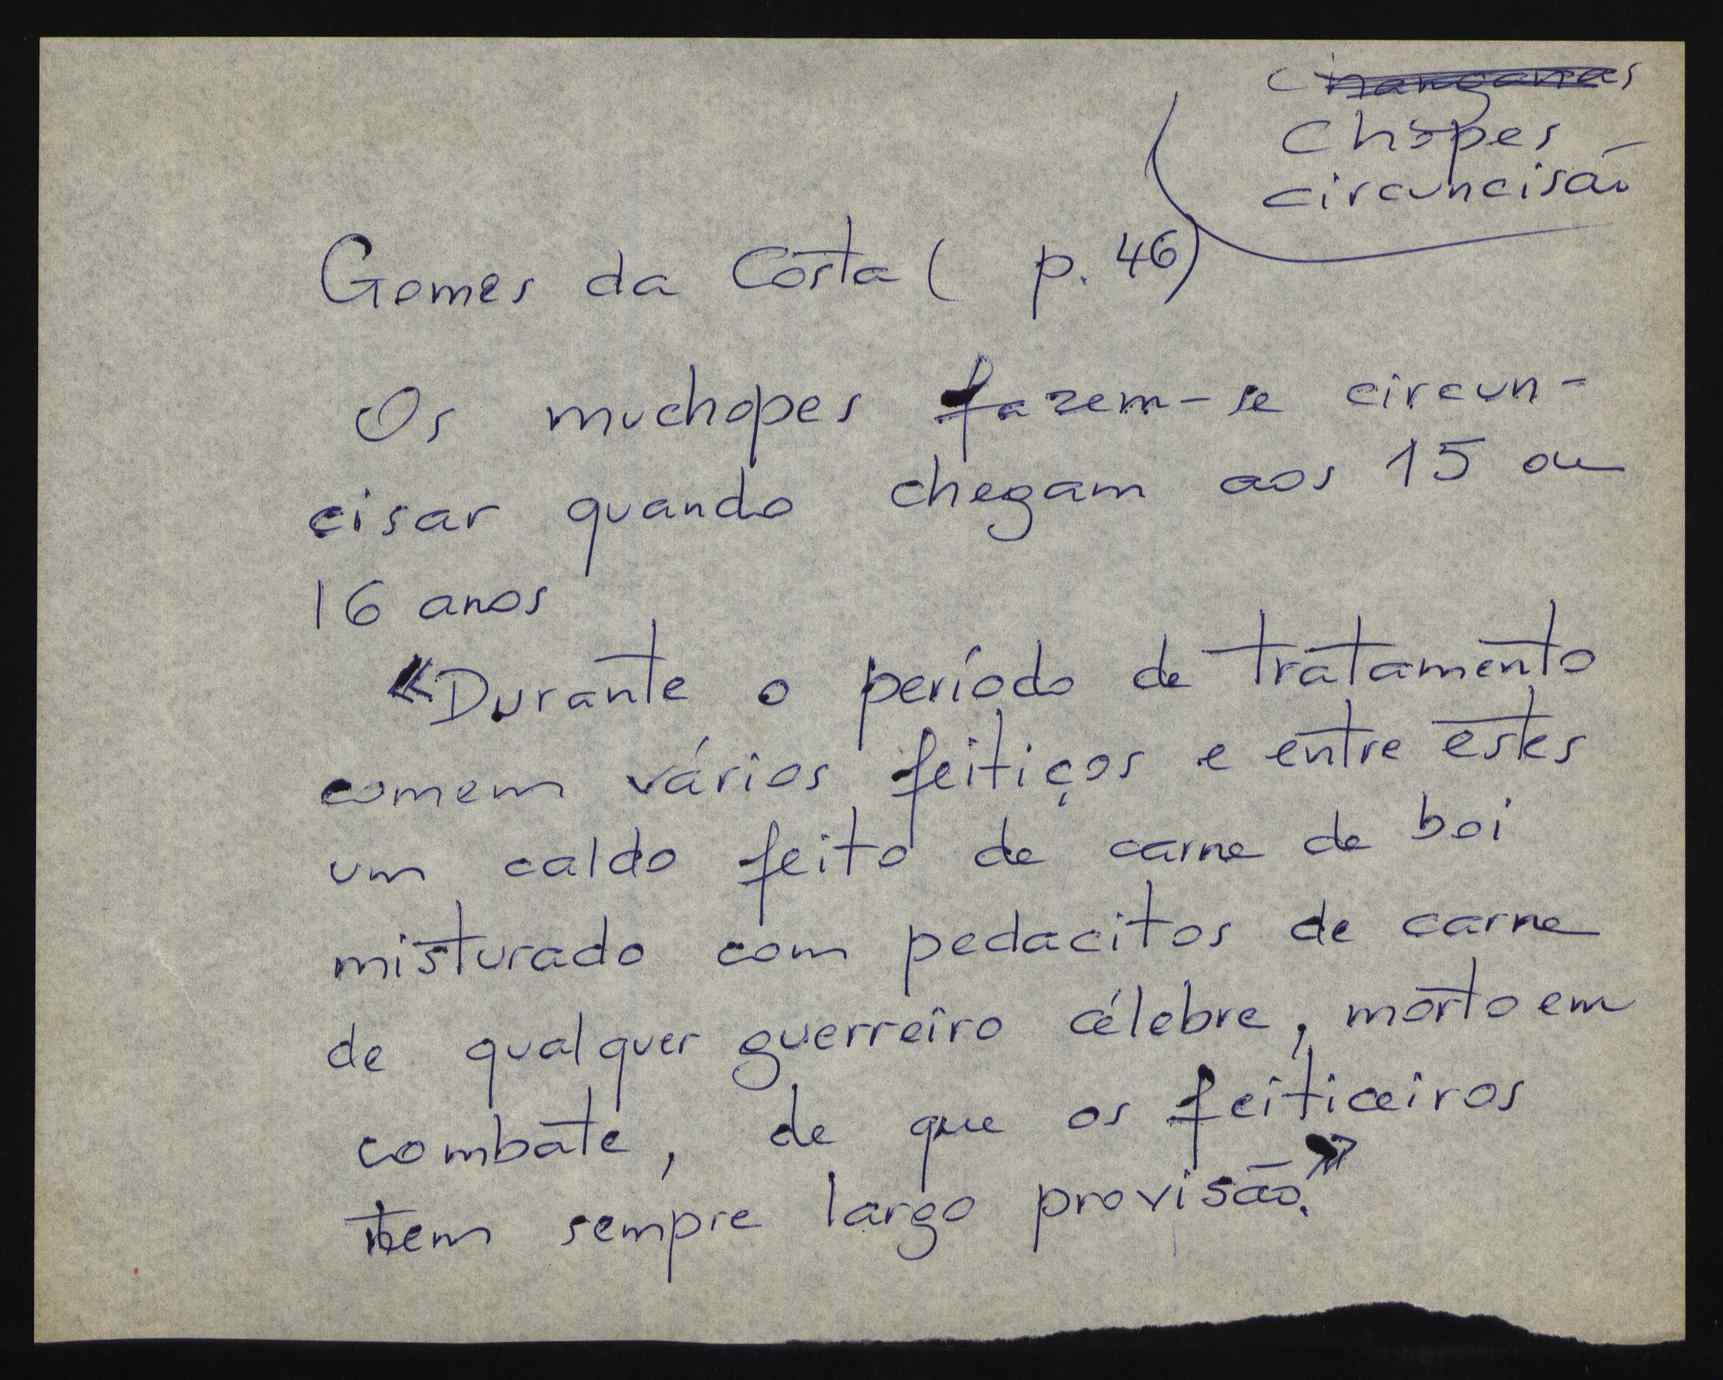 Chopes
circuncisão
Gomes da Costa ( p. 46)
Os muchopes fazem-se circun-
cisar quando chegam aos 15 ou
16 anos
«Durante o período de tratamento
comem vários feitiços e entre estes
um caldo feito de carne de boi
misturado com pedacitos de carne
de qualquer guerreiro célebre, morto em
combate, de que os feiticeiros
tem sempre largo provisão.»